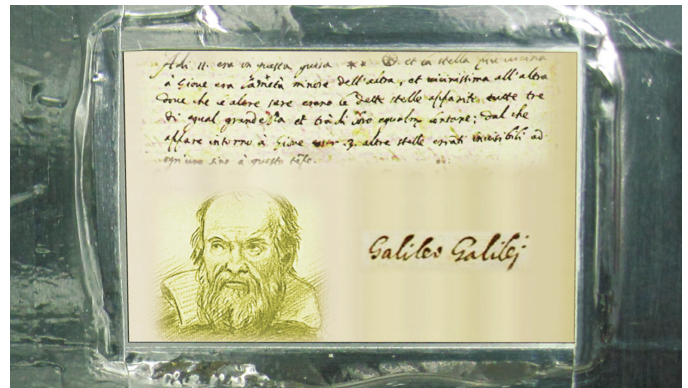 Adi 11. era in questa guisa ** et la stella più vicina
à Giove era la metà minore dell'altra, et vicinissima all'altra
dove che le altre sere erano le dette stelle apparite tutte tre
di egual grandezza et trà di loro egualm. lontane; dal che
appare intorno à Giove esser .3. altre stelle erranti invisibili ad
ogn'uno sino à questo tempo.
Galileo Galilej